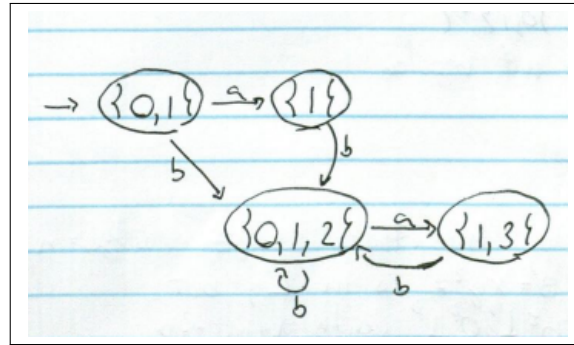 {0,1} a {1}
b b
{0,1,2} a {1,3}
b
b